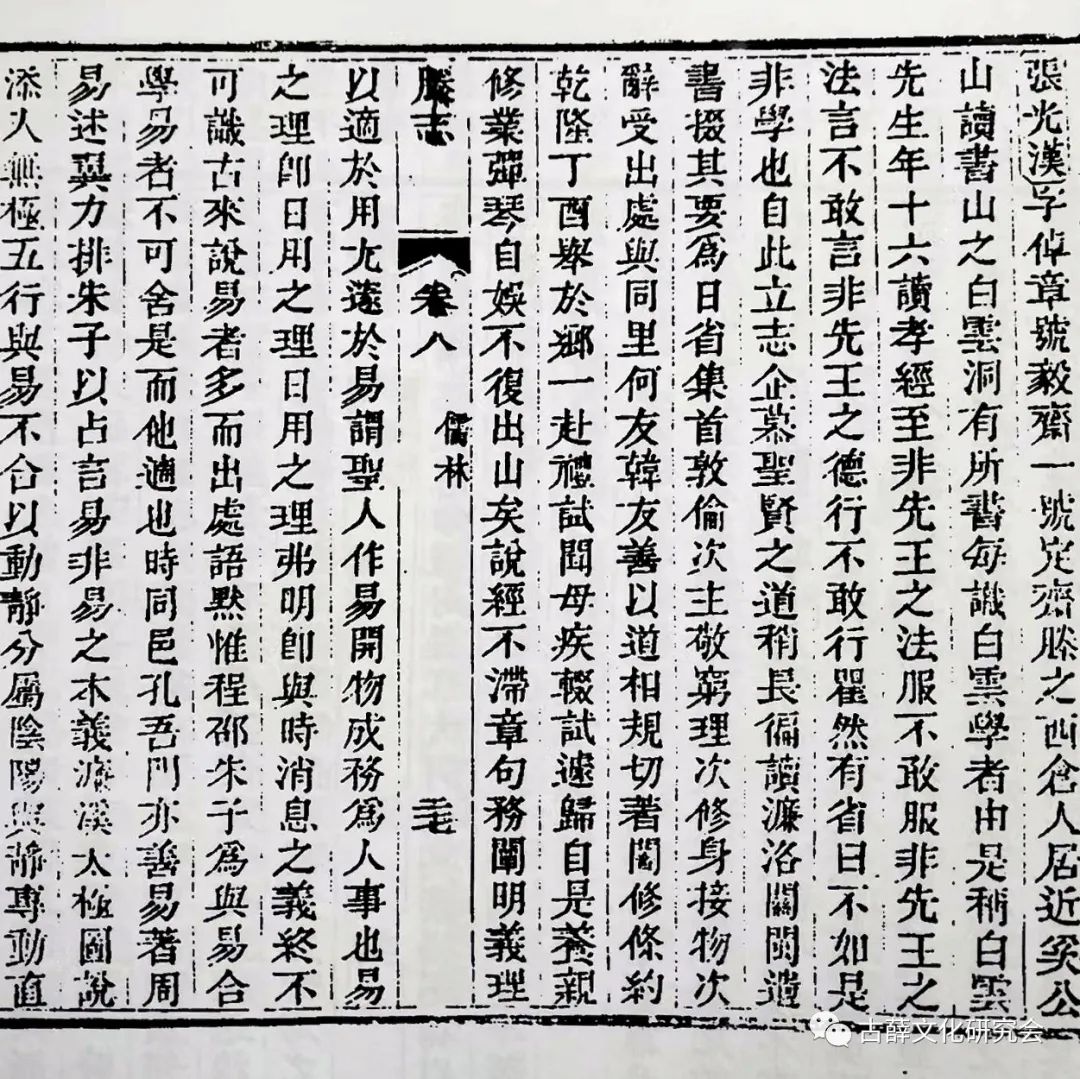 張光漢字倬章號毅齋一號定齋滕之西倉人居近奚公
山讀書山之白雲洞有所書每識白雲學者由是稱白雲
先生年十六讀孝經至非先王之法服不敢服非先王之
法言不敢言非先王之德行不敢行瞿然有省曰不如是
非學也自此立志企慕聖賢之道稍長徧讀濂洛關閩遺
書掇其要為日省集首敦倫次主敬窮理次修身接物次
辭受出處與同里何友韓友善以道相規切著閣修條約
乾隆丁酉舉於鄉一赴禮試聞母疾輟試遽歸自是養親
修業彈琴自娛不復出山矣說經不滯章句務闡明義理
滕志 卷八 儒林 毛
以適於用尤邃於易謂聖人作易開物成務為人事也易
之理卽日用之理日用之理弗明卽與時消息之義終不
可識古來說易者多而出處語默惟程邵朱子為與易合
學易者不可舍是而他適也時同邑孔吾門亦善易著周
易述翼力排朱子以占言易非易之本義濂溪太極圖說
添入無極五行與易不合以動靜分屬陰陽與靜專動直
古薛文化研究会